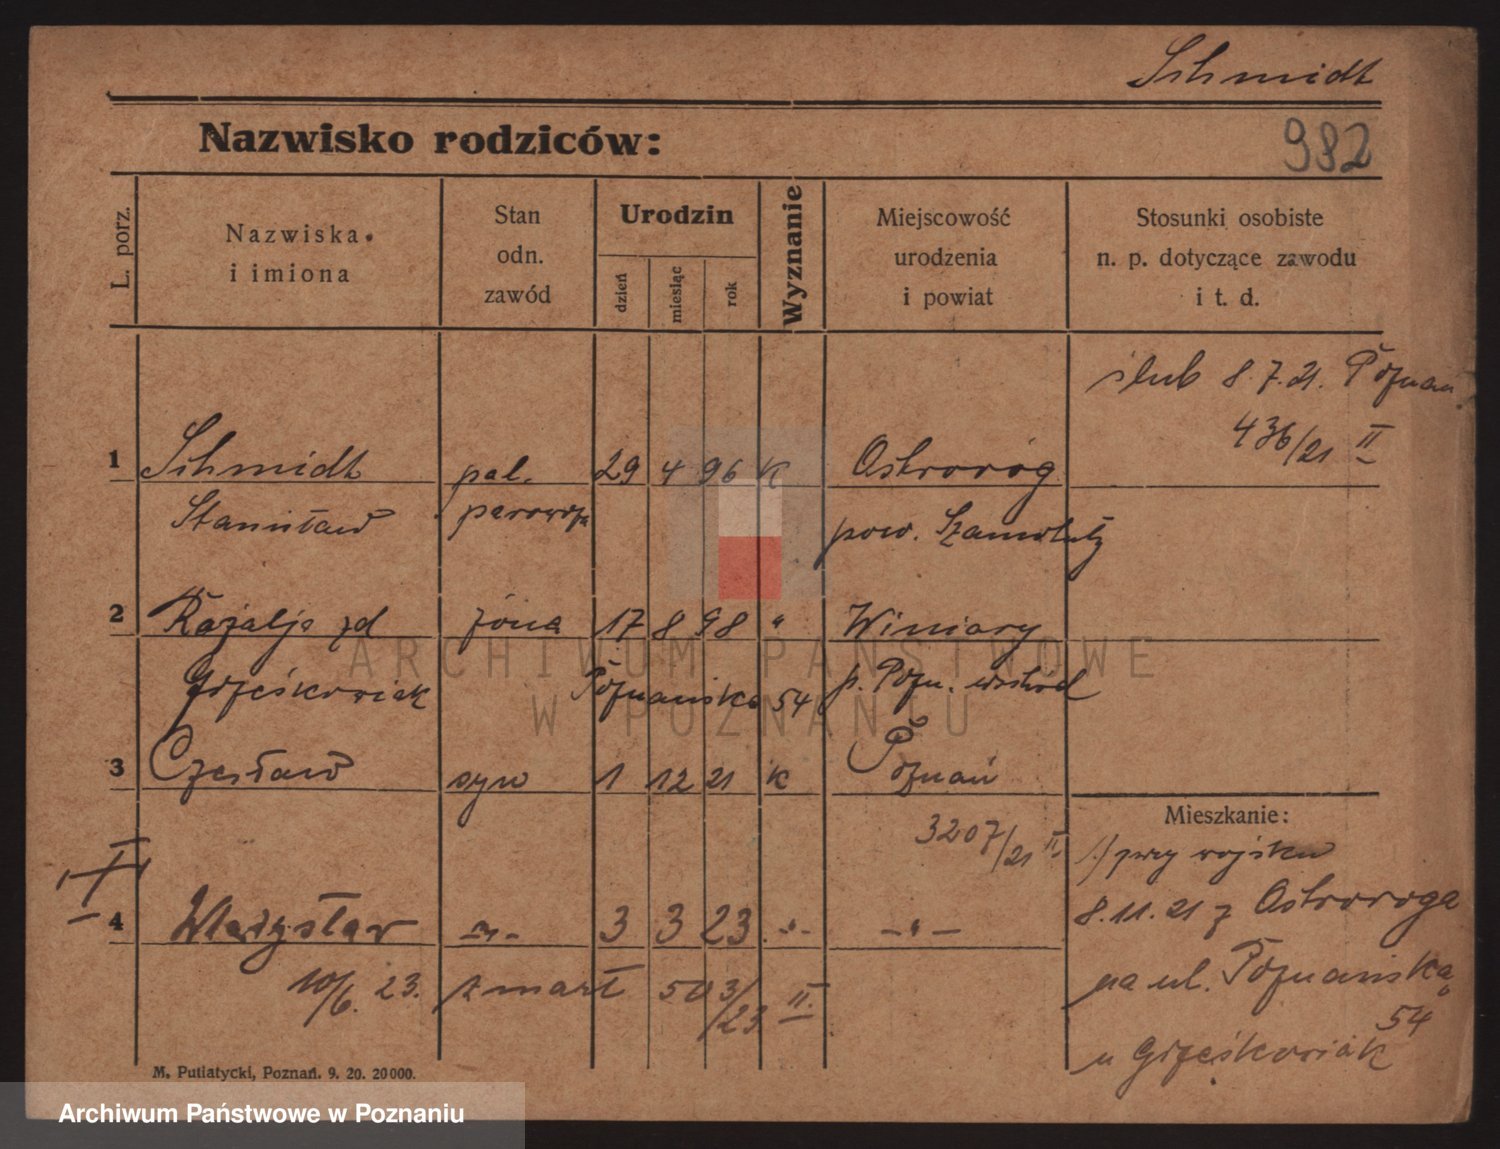 Schmidt
Nazwisko rodziców:
982
L. porz.
Nazwiska
i imiona
Stan
odn.
zawód
Urodzin
dzień
miesiąc
rok
Wyznanie
Miejscowość
urodzenia
i powiat
Stosunki osobiste
n. p. dotyczące zawodu
i t. d.
ślub 8.7.21. Poznań
436/21 II
1 Schmidt pal. 29 4 96 K Ostroróg
Stanisław parowoza pow. Szamotuły
2 Rozalja zd żona 17 8 98 " Winiary
Grześkowiak Poznańska 54 p. Pozn. wschód
3 Czesław syn 1 12 21 k Poznań
3207/21 II
Mieszkanie:
1/ przy wojsku
4 Władysław -"- 3 3 23 -"- -"-
8.11.21 z Ostroroga
10/6. 23. zmarł 503/23 II.
na ul. Poznańską
54
u Grześkowiak
M. Putiatycki, Poznań. 9. 20. 20000.
ARCHIWUM PAŃSTWOWE
W POZNANIU
Archiwum Państwowe w Poznaniu